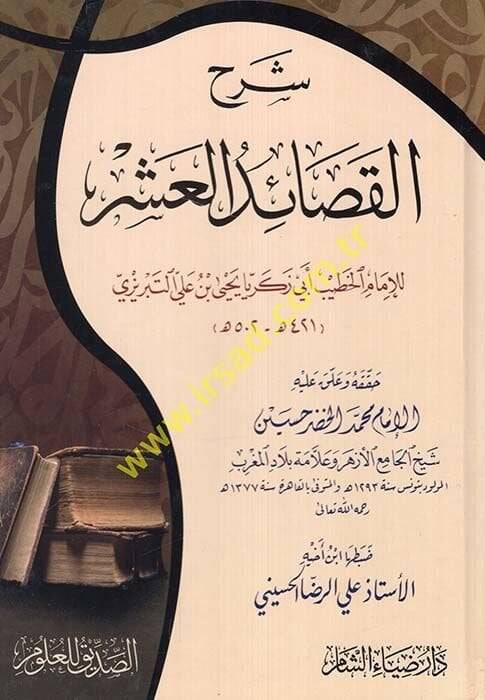 شرح
القصائد العشر
للإمام الخطيب أبي زكريا يحيى بن علي التبريزي
(٤٢١ هـ - ٥٠٢ هـ)
حققه وعلق عليه
الإمام محمد الخضر حسين
شيخ الجامع الأزهر وعلامة بلاد المغرب
المولود بتونس سنة ١٢٩٣ هـ والمتوفى بالقاهرة سنة ١٣٧٧ هـ
رحمه الله تعالى
ضبطها ابن أخيه
الأستاذ علي الرضا الحسيني
دار ضياء الشام
الصديق للعلوم
www.irsad.com.tr